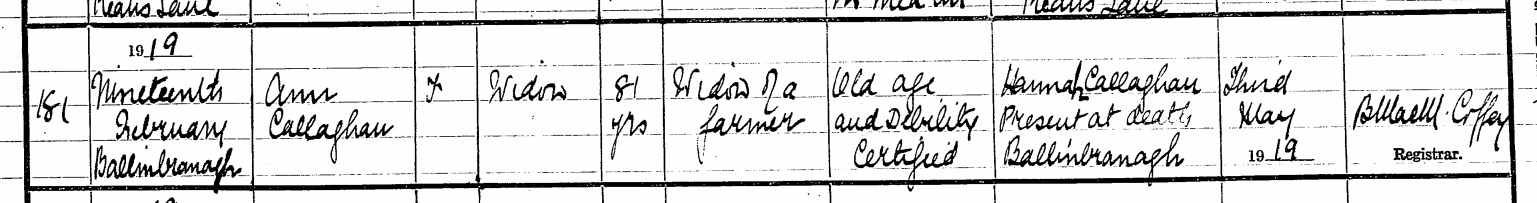 Keans Lane
Keans Lane
181
1919
Nineteenth
February
Ballinbranagh
Ann
Callaghan
F
Widow
81
yrs
Widow of a
farmer
Old age
and Debility
Certified
Hannah Callaghan
Present at death
Ballinbranagh
Third
May
1919
Coffey
Registrar.